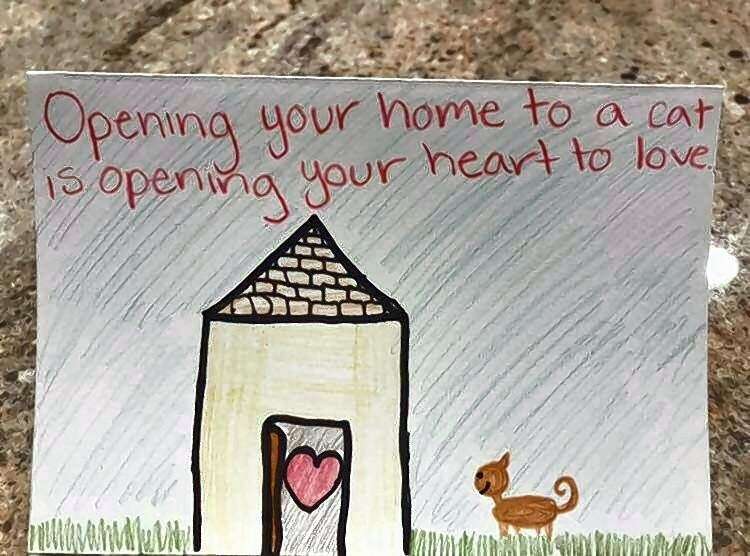 Opening your home to a cat
is opening your heart to love.